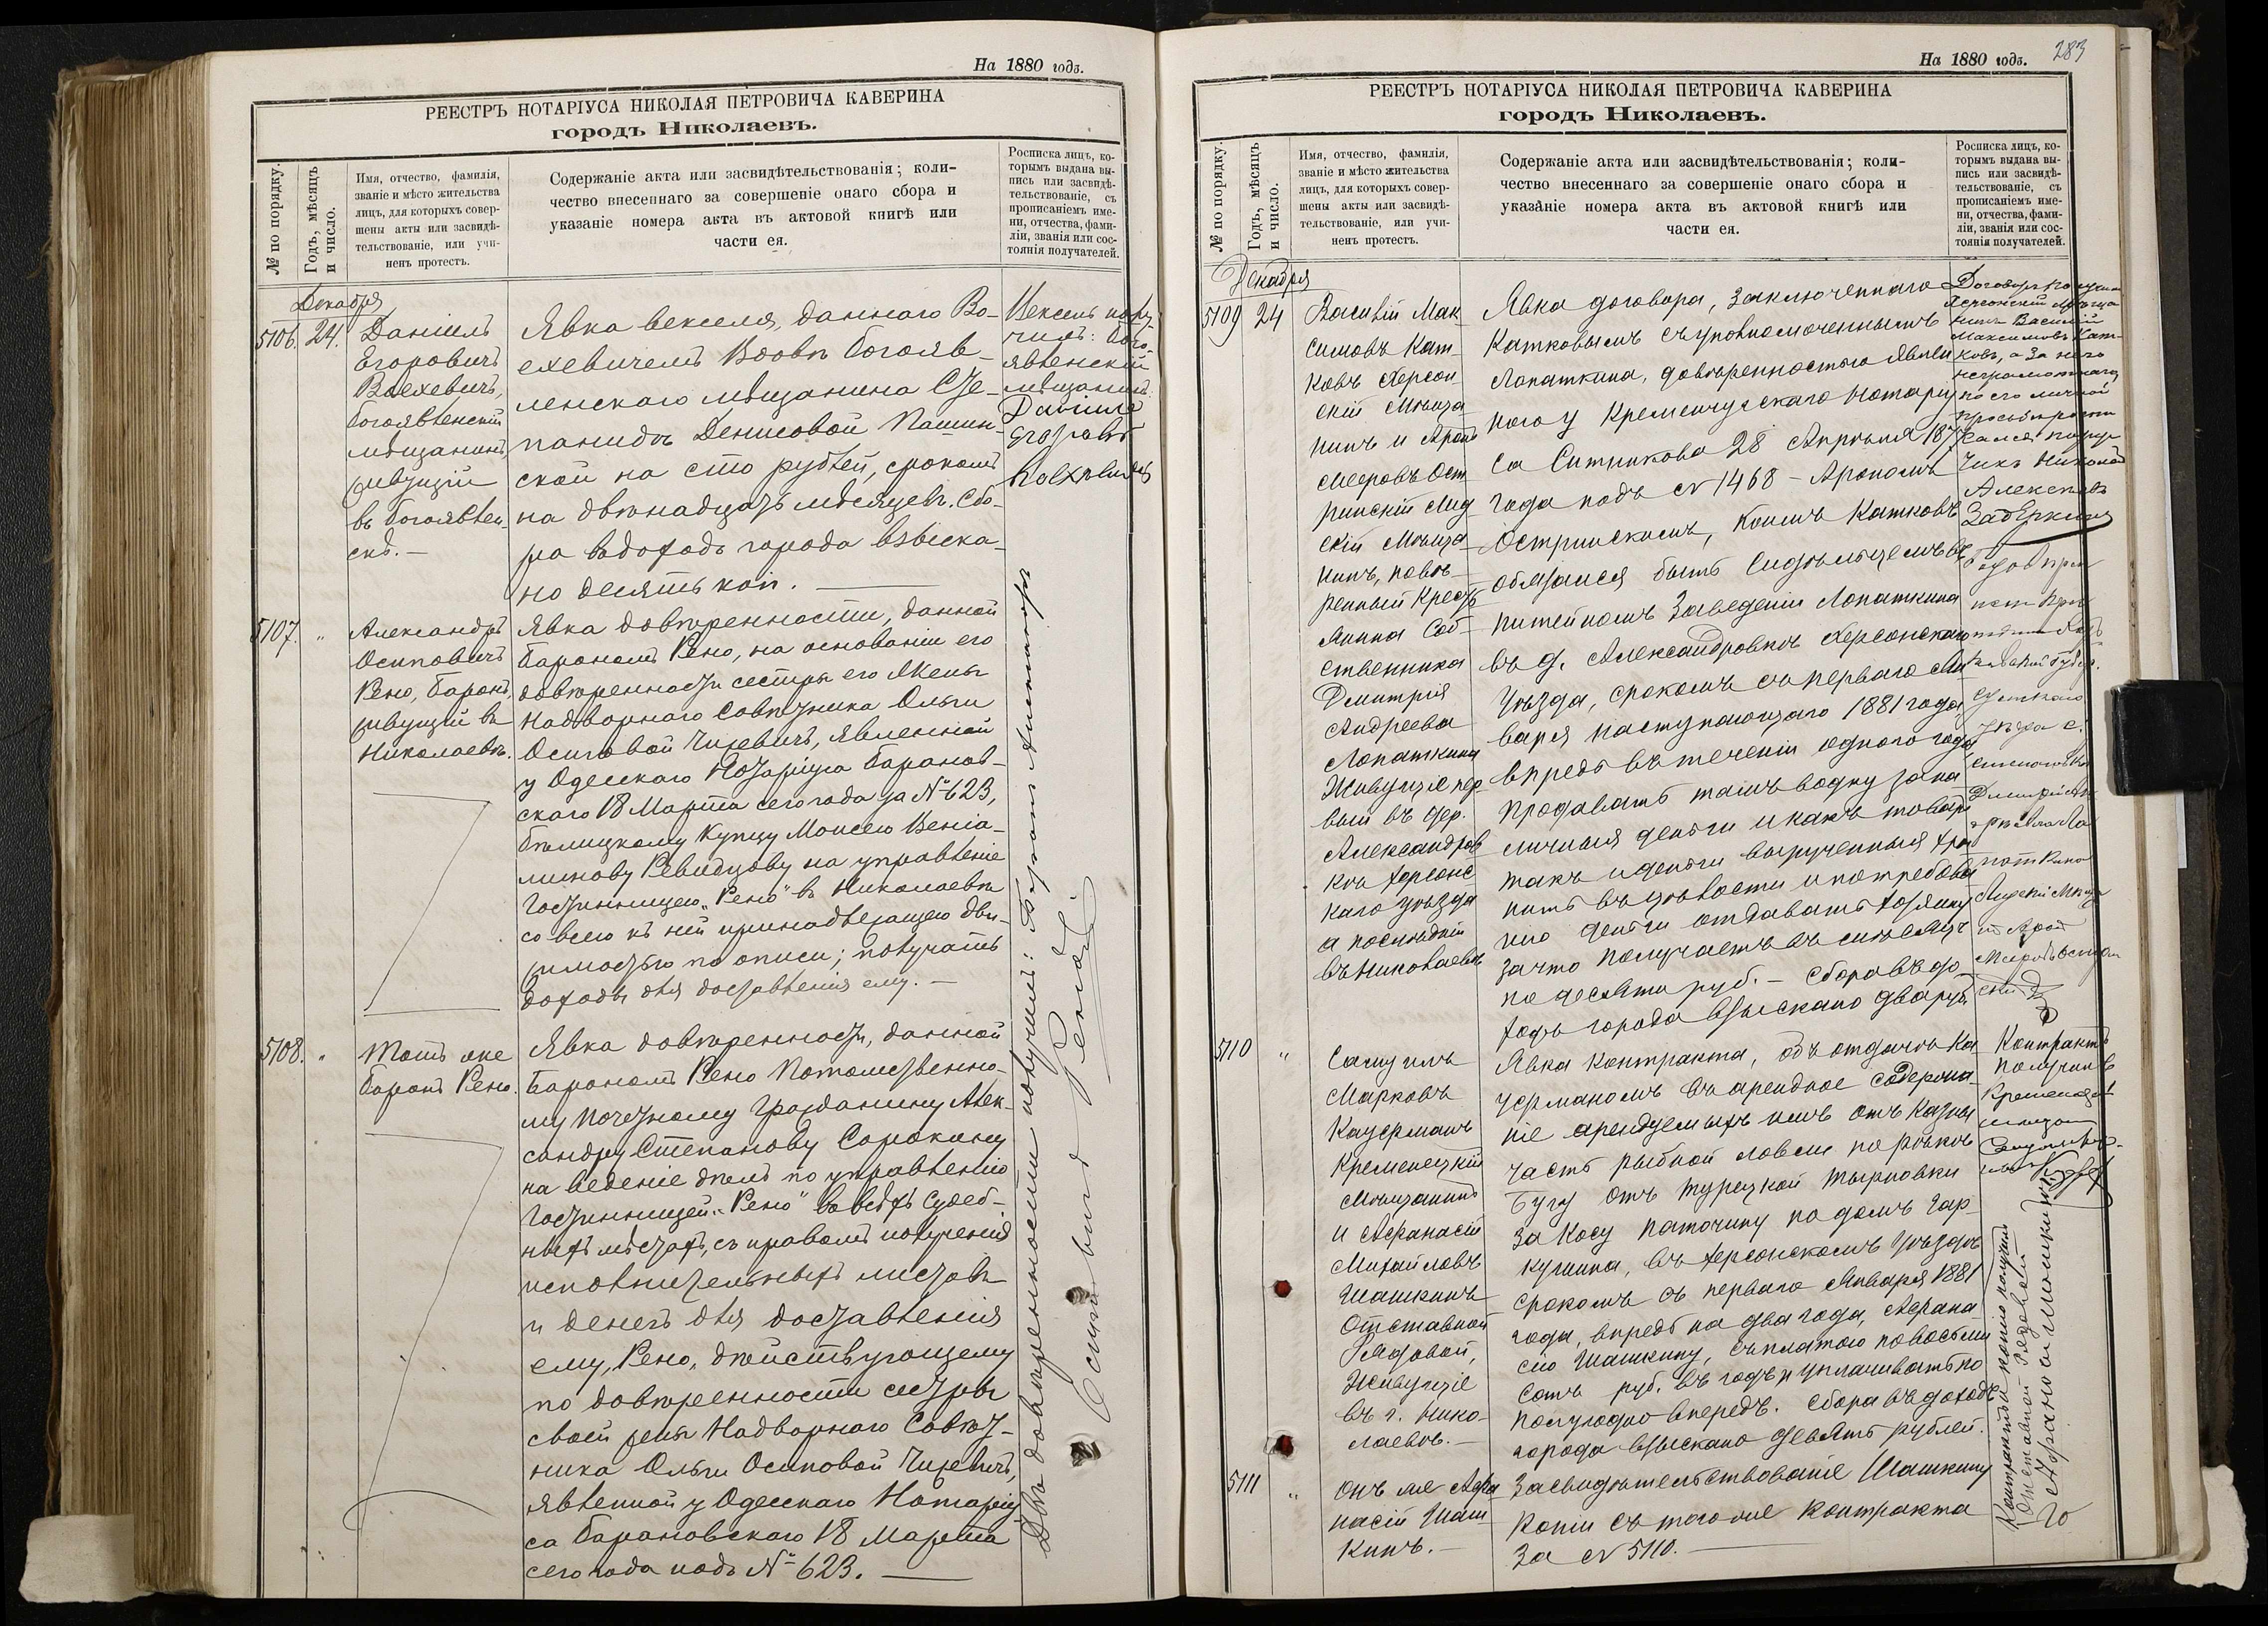 На 1880 годъ.
РЕЕСТРЪ НОТАРІУСА НИКОЛАЯ ПЕТРОВИЧА КАВЕРИНА
городъ Николаевъ.
№ по порядку.
Годъ, мѣсяцъ
и число.
Имя, отчество, фамилія,
званіе и мѣсто жительства
лицъ, для которыхъ совер-
шены акты или засвидѣ-
тельствованіе, или учи-
ненъ протестъ.
Содержаніе акта или засвидѣтельствованія; коли-
чество внесеннаго за совершеніе онаго сбора и
указаніе номера акта въ актовой книгѣ или
части ея.
Росписка лицъ, ко-
торымъ выдана вы-
пись или засвидѣ-
тельствованіе, съ
прописаніемъ име-
ни, отчества, фами-
ліи, званія или сос-
тоянія получателей.
Декабря
5106. 24.
Даніилъ
Егоровичъ
Воехевичъ,
богоявленскій
мѣщанинъ,
живущій
въ Богоявлен-
скѣ. —
Явка векселя, даннаго Во-
ехевичемъ Вдовѣ богояв-
ленскаго мѣщанина Сте-
панидѣ Денисовой Пашин-
ской на сто рублей, срокомъ
на двѣнадцать мѣсяцевъ. Сбо-
ра въ доходъ города взыска-
но десять коп. —
Вексель полу-
чилъ: бого-
явленскій
мѣщанинъ
Даніилъ
Егоровъ
5107. "
Александръ
Осиповичъ
Рено, баронъ,
живущій въ
Николаевѣ.
Явка довѣренности, данной
барономъ Рено, на основаніи его
довѣренности сестры его Жены
Надворнаго Совѣтника Ольги
Осиповой Чижевичъ, явленной
у Одесскаго Нотаріуса Баранов-
скаго 18 Марта сего года за № 623,
бѣлицкому Купцу Моисею Веніа-
минову Ревидцову на управленіе
гостинницею „Рено" въ Николаевѣ
со всею къ ней принадлежащею дви-
жимостью по описи; получать
доходы для доставленія ему. —
5108. "
Тотъ же
баронъ Рено.
Явка довѣренности, данной
Барономъ Рено Потомственно-
му почетному гражданину Алек-
сандру Степанову Сорокину
на веденіе дѣлъ по управленію
Гостинницей „Рено" во всѣхъ судеб-
ныхъ мѣстахъ, съ правомъ полученія
исполнительныхъ листовъ
и денегъ для доставленія
ему, Рено, дѣйствующему
по довѣренности сестры
своей жены Надворнаго Совѣт-
ника Ольги Осиповой Чижевичъ,
явленной у Одесскаго Нотаріу-
са Барановскаго 18 Марта
сего года подъ № 623. —
Двѣ довѣренности получилъ: Баронъ Александръ
Осиповичъ Рено
На 1880 годъ.
283
РЕЕСТРЪ НОТАРІУСА НИКОЛАЯ ПЕТРОВИЧА КАВЕРИНА
городъ Николаевъ.
№ по порядку.
Годъ, мѣсяцъ
и число.
Имя, отчество, фамилія,
званіе и мѣсто жительства
лицъ, для которыхъ совер-
шены акты или засвидѣ-
тельствованіе, или учи-
ненъ протестъ.
Содержаніе акта или засвидѣтельствованія; коли-
чество внесеннаго за совершеніе онаго сбора и
указаніе номера акта въ актовой книгѣ или
части ея.
Росписка лицъ, ко-
торымъ выдана вы-
пись или засвидѣ-
тельствованіе, съ
прописаніемъ име-
ни, отчества, фами-
ліи, званія или сос-
тоянія получателей.
Декабря
5109 24
Василій Мак-
симовъ Кат-
ковъ Херсон-
скій Мѣща-
нинъ и Аронъ
Мееровъ Ост-
ринскій Лид-
скій Мѣща-
нинъ, повѣ-
ренный Крест-
янина Соб-
ственника
Дмитрія
Андреева
Лопаткина
Живущіе пер-
вый въ дер.
Александров-
кѣ Херсонс-
каго уѣзда
а послѣдній
въ Николаевѣ
Явка договора, заключеннаго
Катковымъ съ уполномоченнымъ
Лопаткина, довѣренностью Явлен-
ною у Кременчугскаго Нотаріу-
са Ситникова 28 Апрѣля 187
года подъ № 1468 – Арономъ
Остринскимъ, коимъ Катковъ
обязался быть Сидѣльцемъ въ
питейномъ Заведеніи Лопаткина
въ д. Александровкѣ Херсонскаго
Уѣзда, срокомъ съ перваго Ян-
варя наступающаго 1881 года
впредь въ теченіи одного года
продавать тамъ водку за на-
личныя деньги и какъ товаръ
такъ и деньги вырученныя хра-
нить въ цѣлости и по требова-
нію деньги отдавать хозяину
за что получаетъ въ мѣсяцъ
по десяти руб. – Сбора въ до-
ходъ города взыскано два руб.
Договоръ получилъ
Херсонскій мѣща-
нинъ Василій
Максимовъ Кат-
ковъ, а за него
неграмотнаго
по его личной
просьбѣ
Николай
Алексѣевъ
5110 "
Самуилъ
Марковъ
Кауерманъ
Кременецкій
Мѣщанинъ
и Афанасій
Михайловъ
Шашкинъ
Отставной
Рядовой,
Живущіе
въ г. Нико-
лаевѣ. —
Явка контракта, объ отдачѣ Ка-
уерманомъ въ арендное содержа-
ніе арендуемыхъ имъ отъ Казны
часть рыбной ловли по рѣкѣ
Бугу отъ Турецкой Тырновки
за Косу Паточину по домъ Гар-
кушина, въ Херсонскомъ Уѣздѣ
срокомъ съ перваго Января 1881
года, впредь на два года, Афана-
сію Шашкину, съ платою по восьми
сотъ руб. въ годъ и уплачивать по-
полугодно впередъ. Сбора въ доходъ
города взыскано девять рублей.
Контрактъ
получилъ
5111 "
Онъ же Афа-
насій Шаш-
кинъ. —
Засвидѣтельствованіе Шашкину
Копіи съ того же Контракта
за № 5110. —
Контрактъ и копію получилъ
Отставной Рядовой